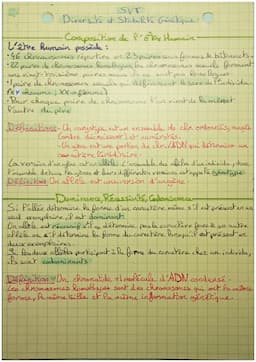 SVT
Diversité et Stabilité Génétique
Composition de l'être Humain
L'être humain possède :
-46 chromosomes répartis en 23 paires sous formes de bâtonnets.
-22 paires de chromosomes homologues, chromosomes sexuels forment
une vingt-troisième paires mais ne sont pas homologues
-1 paire de chromosomes sexuels qui définissent le sexe de l'individu
XX femme)
-Pour chaque paire de chromosomes l'un vient de la mère et
l'autre du père
Définitions - Un caryotype est un ensemble de chromosomes rangés
(ordre décroissant) et numérotés.
- Un gène est une portion de l'ADN qui détermine un
caractère héréditaire.
La version d'un gène est un allèle, l'ensemble des d'un individu, donc
l'ensemble de tous les gènes et leurs différentes versions est appelé génotype
Définition : Un allèle est une version d'un gène
Dominance, Récessivité, Codominance
Si l'allèle détermine la forme d'un caractère même s'il est présent en un
seul exemplaire, il est dominant.
Un allèle est récessif s'il détermine pas le caractère face à un autre
allèle ou s'il détermine la forme du caractère lorsqu'il est présent en
deux exemplaires.
Si les deux allèles participent à la forme du caractère chez un individu,
ils sont codominants
Définition : Un chromatide = 1 molécule d'ADN condensé
- Les chromosomes homologues sont des chromosomes qui ont la même
forme, la même taille et la même information génétique.